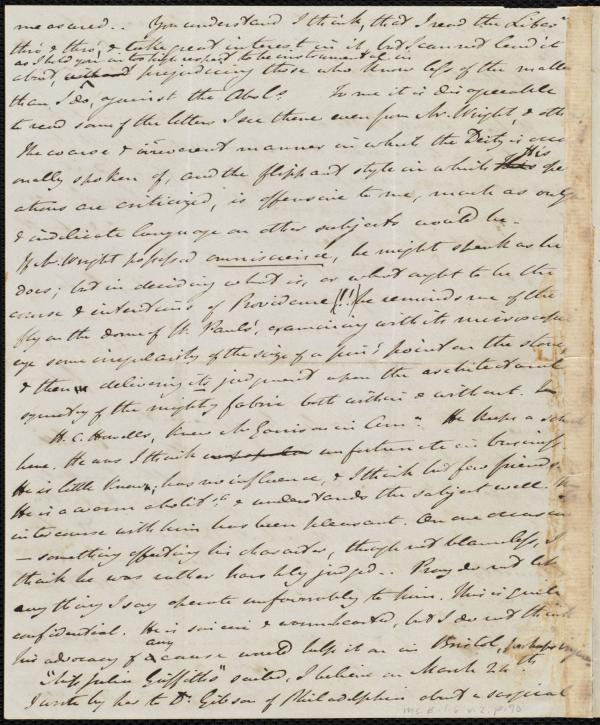 measured.. You understand I think, that I read the Liber
thro' & thro', & take great interest in it, but I cannot lend it
as I hold you in too high respect to be instrumental in
about, without prejudicing those who know less of the matter
than I do, against the Abol.s To me it is disagreeable
to read some of the letters I see there even from Mr. Wright, & oth
The coarse & irreverent manner in which the Deity is occa
onally spoken of, and the flippant style in which His ope
ations are criticized, is offensive to me, much as
& indelicate language on other subjects would be.
If Mr. Wright possessed omniscience, he might speak as he
does; but in deciding what is, or what ought to be the
course & intentions of Providence (!!!) he reminds me of the
fly on the dome of St. Paul's, examining with its microscopic
eye some irregularity of the size of a pin's point on the stone,
& then delivering its judgment upon the architect and
symetry of the mighty fabric both within & without.
H. C. Howells, knew Mr Garrison in Am.n He keeps a school
here. He was I think unfortunate in business
He is little known, has no influence, & I think but few friends
He is a warm abolit.st & understands the subject well.
intercourse with him has been pleasant. On one occasion
— something affecting his character, though not blameless, I
think he was rather harshly judged.. Pray do not let
anything I say operate unfavorably to him. This is quite
confidential. He is sincere & warmhearted, but I do not think
any
his advocacy of a cause would help it on in Bristol, perhaps
"Ship Julia Griffiths" sailed, I believe on March 24th
I wrote by her to Dr. Gibson of Philadelphia about a surgical
Ms. B. 1. 6 v. 2, p. 190